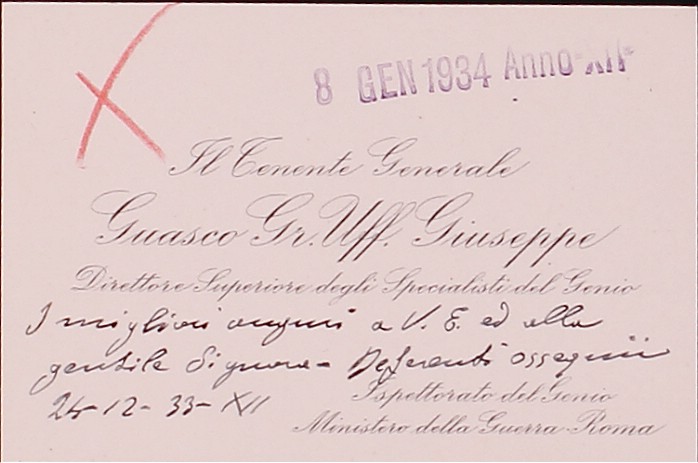 8 GEN 1934 Anno XII
Il Tenente Generale
Guasco Gr. Uff. Giuseppe
Direttore Superiore degli Specialisti del Genio
I migliori auguri a V. E. ed alla
gentile Signora - Deferenti ossequii
24-12-33-XII
Ispettorato del Genio
Ministero della Guerra - Roma